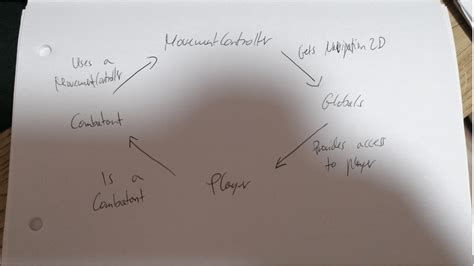 MovementController
Uses a
MovementController
Gets Navigation2D
Globals
Combatant
Provides access
to player
Player
Is a
Combatant